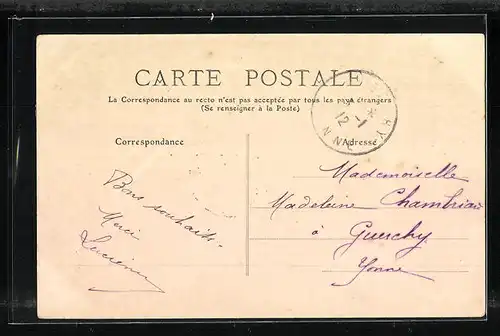 CARTE POSTALE
La Correspondance au recto n'est pas acceptée par tous les pays étrangers
(Se renseigner à la Poste)
Correspondance
Adresse
Bons souhaits.
Merci
Lucienne
Mademoiselle
Madeleine
à Guerchy
Yonne